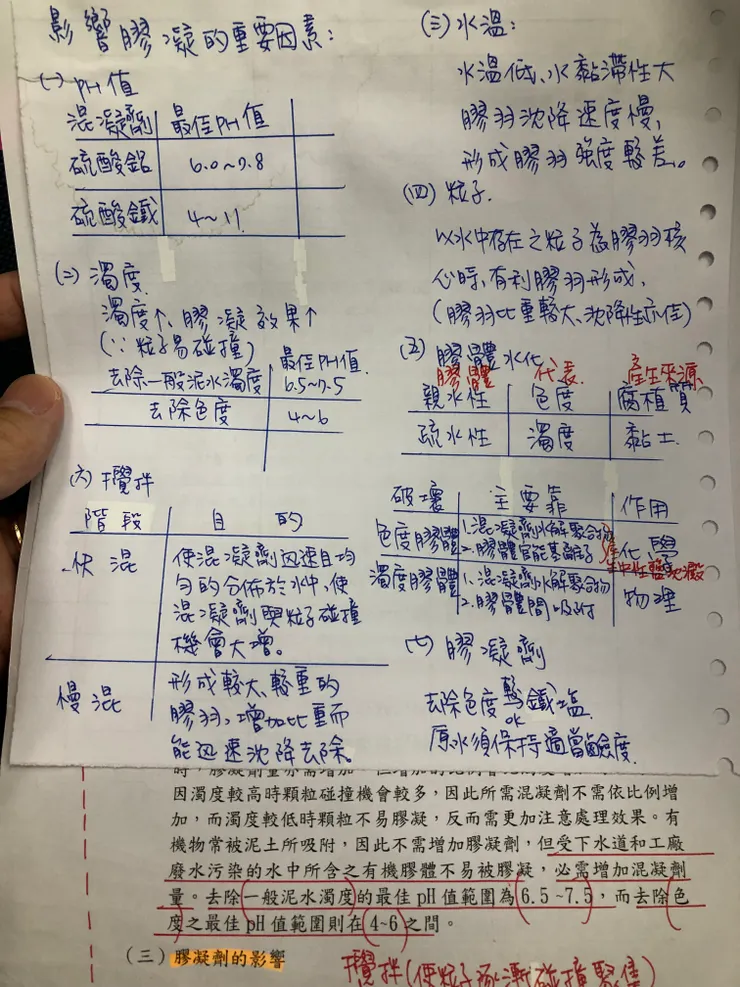 影響膠凝的重要因素:
(一) PH值
混凝劑 最佳PH值
硫酸鋁 6.0~7.8
硫酸鐵 4~11
(二) 濁度
濁度↑、膠凝效果↑
(∵粒子易碰撞)
最佳PH值
去除一般泥水濁度 6.5~7.5
去除色度 4~6
(六) 攪拌
階段 目的
快混 使混凝劑迅速且均
勻的分佈於水中,使
混凝劑與粒子碰撞
機會大增。
慢混 形成較大、較重的
膠羽、增加比重而
能迅速沈降去除。
(三) 水溫:
水溫低、水黏滯性大
膠羽沈降速度慢,
形成膠羽強度較差。
(四) 粒子.
以水中存在之粒子為膠羽核
心時,有利膠羽形成,
(膠羽比重較大、沈降性亦佳)
(五) 膠體水化
膠體 代表 產生來源
親水性 色度 腐植質
疏水性 濁度 黏土
破壞 主要靠 作用
色度膠體 1.混凝劑水解聚合物 化學
2.膠體官能基離子
產生中性鹽沈澱
濁度膠體 1.混凝劑水解聚合物 物理
2.膠體間吸附
(七) 膠凝劑
去除色度較ok鐵塩
原水須保持適當鹼度.
因濁度較高時顆粒碰撞機會較多,因此所需混凝劑不需依比例增
加,而濁度較低時顆粒不易膠凝,反而需更加注意處理效果。有
機物常被泥土所吸附,因此不需增加膠凝劑,但受下水道和工廠
廢水污染的水中所含之有機膠體不易被膠凝,必需增加混凝劑
量。去除一般泥水濁度的最佳 pH 值範圍為 6.5~7.5,而去除色
度之最佳 pH 值範圍則在 4~6 之間。
(三)膠凝劑的影響
攪拌(使粒子逐漸碰撞聚集)